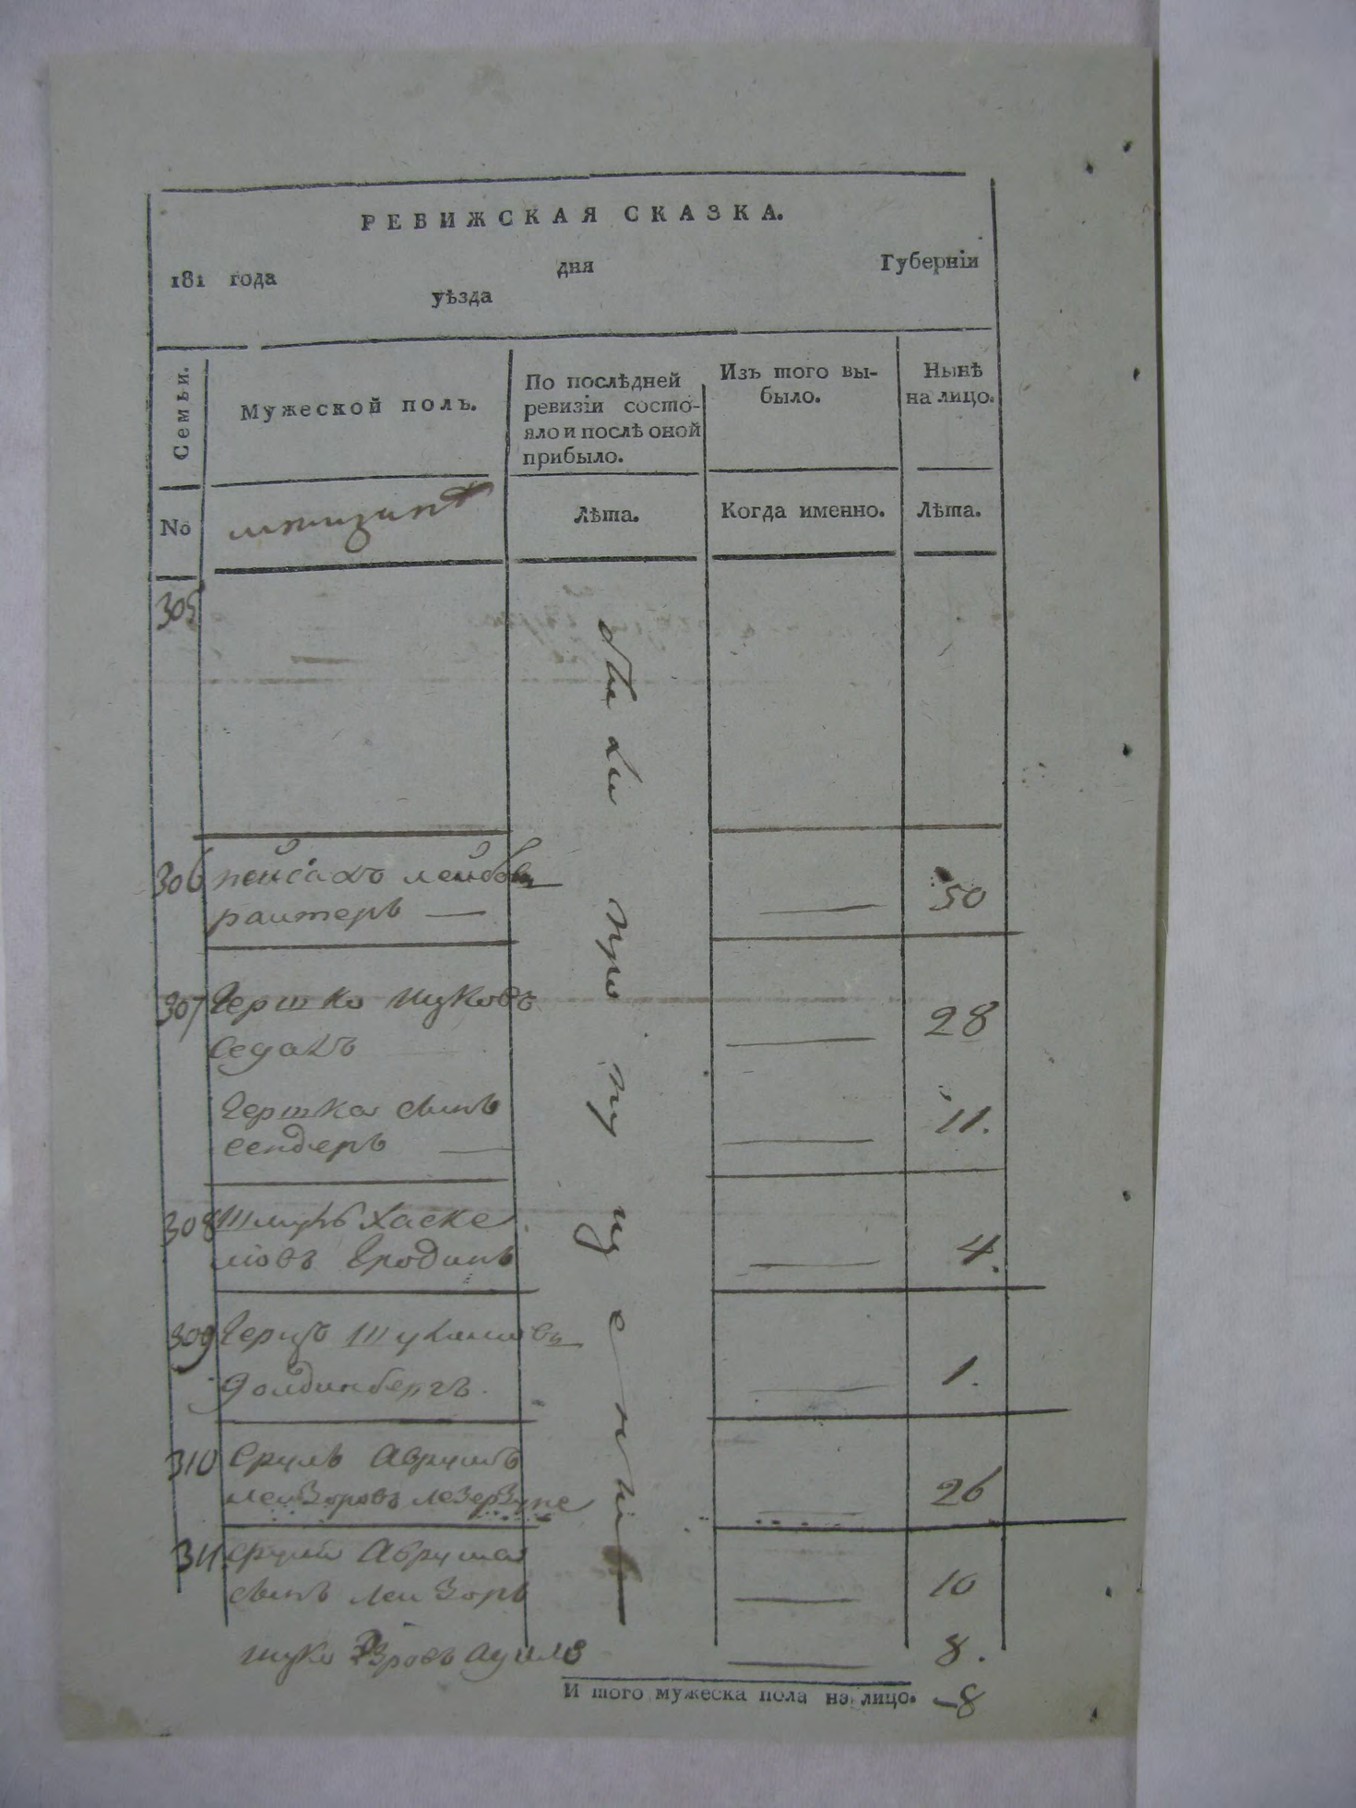 РЕВИЖСКАЯ СКАЗКА.
181 года дня Губерніи
уѣзда
Семьи.
Мужеской полъ.
По послѣдней
ревизіи состо-
яло и послѣ оной
прибыло.
Изъ того вы-
было.
Нынѣ
на лицо.
No
Лѣта.
Когда именно.
Лѣта.
305
306 пейсахъ лейбовъ
раитеръ — 50
307 Гершко ицковъ
Седахъ 28
Гершка сынъ
сендеръ — 11.
308 Шмуль Хаске
лювъ бродинъ 4.
309 Герцъ
Голдинбергъ 1.
310 Сруль Аврумъ
лейзоровъ 26
311 Сруля Аврума
сынъ лейзоръ 10
ицко 8.
И того мужеска пола на лицо. -8